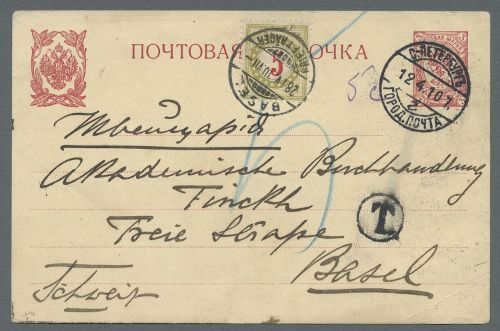 ПОЧТОВАЯ КАРТОЧКА
5
BASEL
BRIEFTRÄGER
С-ПЕТЕРБУРГ
12.4.10
ГОРОД. ПОЧТА
Швейцарiя
Akademische Buchhandlung
Finckh
Freie Straße
T.
Basel
Schweiz